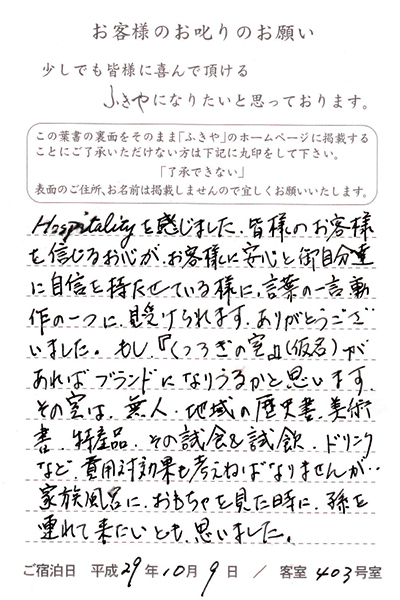 お客様のお叱りのお願い
少しでも皆様に喜んで頂ける
ふきやになりたいと思っております。
この葉書の裏面をそのまま「ふきや」のホームページに掲載する
ことにご了承いただけない方は下記に丸印をして下さい。
「了承できない」
表面のご住所、お名前は掲載しませんので宜しくお願いいたします。
Hospitalityを感じました。皆様のお客様
を信じるお心が、お客様に安心と御自分達
に自信を持たせている様に、言葉の一言動
作の一つに、見受けられます。ありがとうござ
いました。もし『くつろぎの室』(仮名)が
あればブランドになりうるかと思います。
その室は、無人、地域の歴史書、美術
書、特産品、その試食&試飲、ドリンク
など、費用対効果も考えねばなりませんが‥
家族風呂に、おもちゃを見た時に、孫を
連れて来たいとも、思いました。
ご宿泊日 平成29年10月9日 / 客室403号室